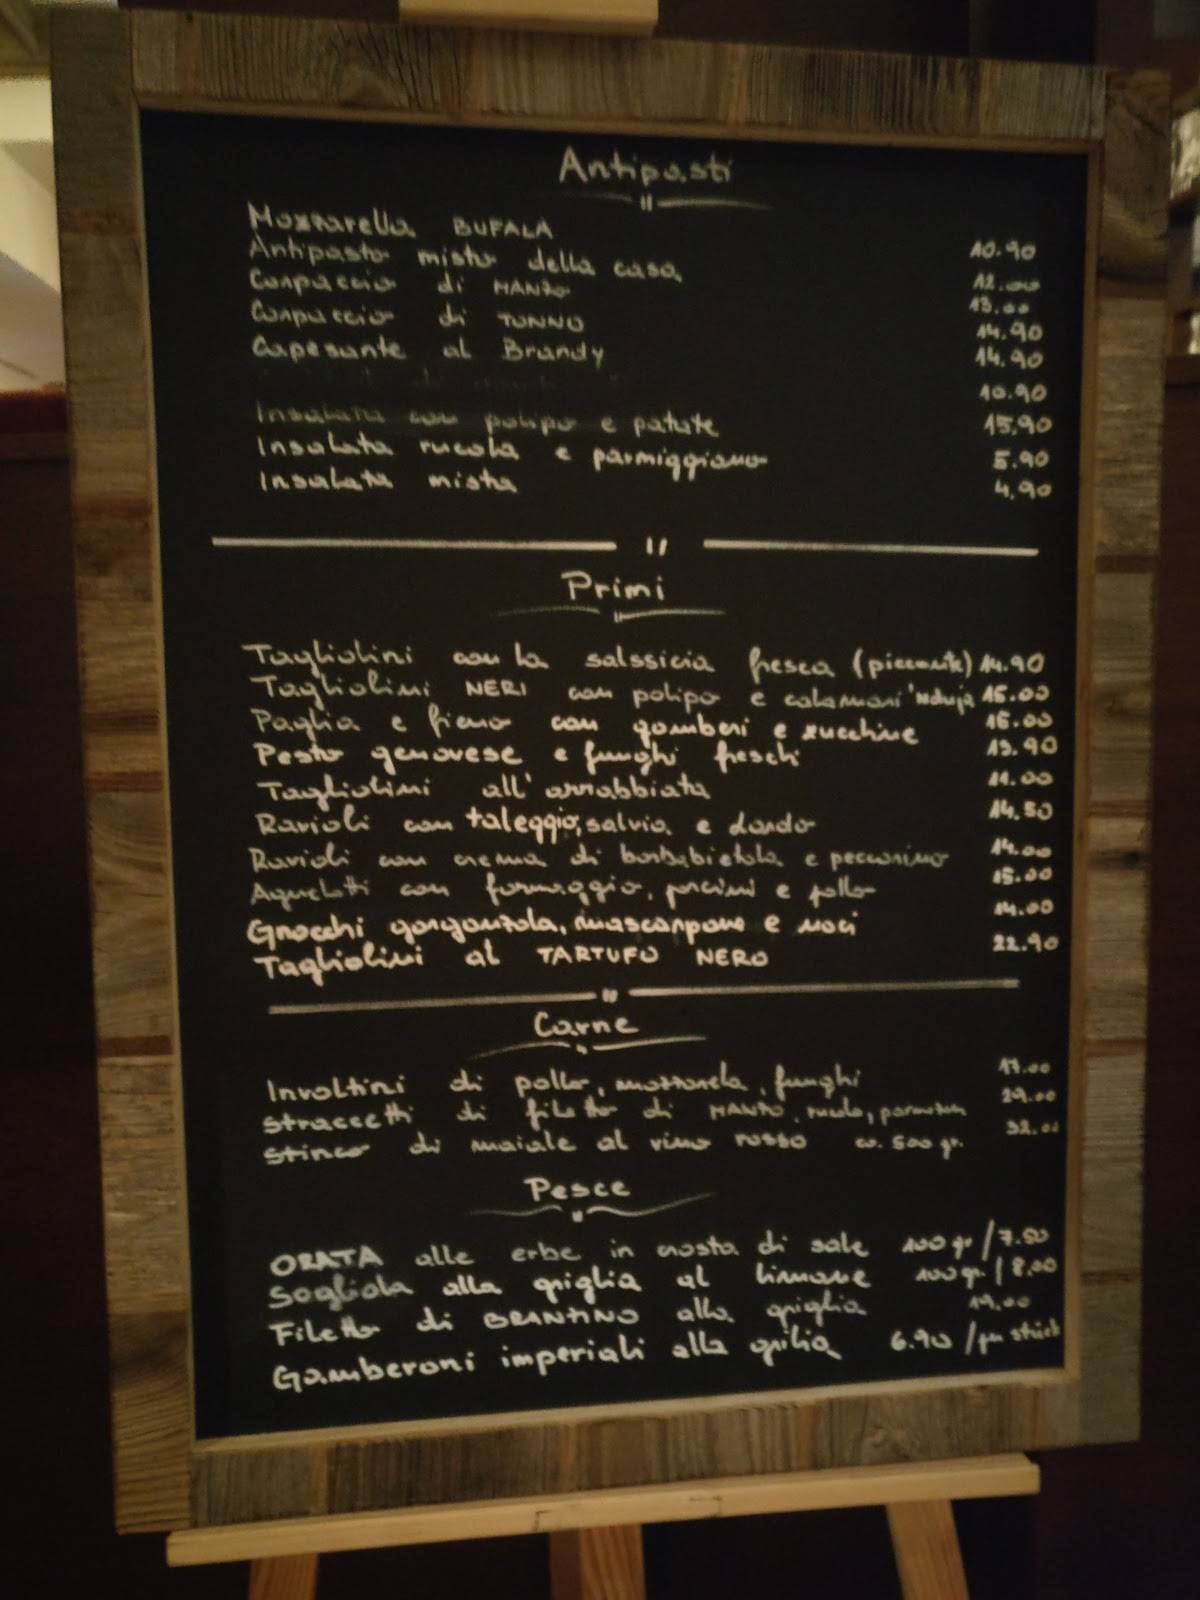 Antipasti
Mozzarella BUFALA 10.90
Antipasto misto della casa 12.00
Carpaccio di MANZO 13.00
Carpaccio di TONNO 14.90
Capesante al Brandy 14.90
10.90
Insalata con polipo e patate 15.90
Insalata rucola e parmiggiano 5.90
Insalata mista 4.90
Primi
Tagliolini con la salssicia fresca (piccante) 14.90
Tagliolini NERI con polipo e calamari 'nduja 15.00
Paglia e fieno con gamberi e zucchine 15.00
Pesto genovese e funghi freschi 13.90
Tagliolini all'arrabbiata 11.00
Ravioli con taleggio, salvia e dardo 14.50
Ravioli con crema di barbabietola e peccorino 14.00
Agnelotti con formaggio, porcini e pollo 15.00
Gnocchi gorgonzola, mascarpone e noci 14.00
Tagliolini al TARTUFO NERO 22.90
Carne
Involtini di pollo, mozzarela, funghi 17.00
Straccetti di filetto di MANZO, rucola, 29.00
Stinco di maiale al vino rosso ca. 500 gr. 32.00
Pesce
ORATA alle erbe in crosta di sale 100 gr / 7.50
Sogliola alla griglia al limone 100 gr / 8.00
Filetto di BRANTINO alla griglia 19.00
Gamberoni imperiali alla grilia 6.90 / per stück